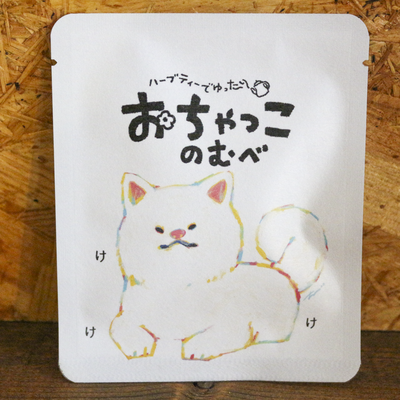 ハーブティーでゆったり
おちゃっこ
のむべ
け
け
け